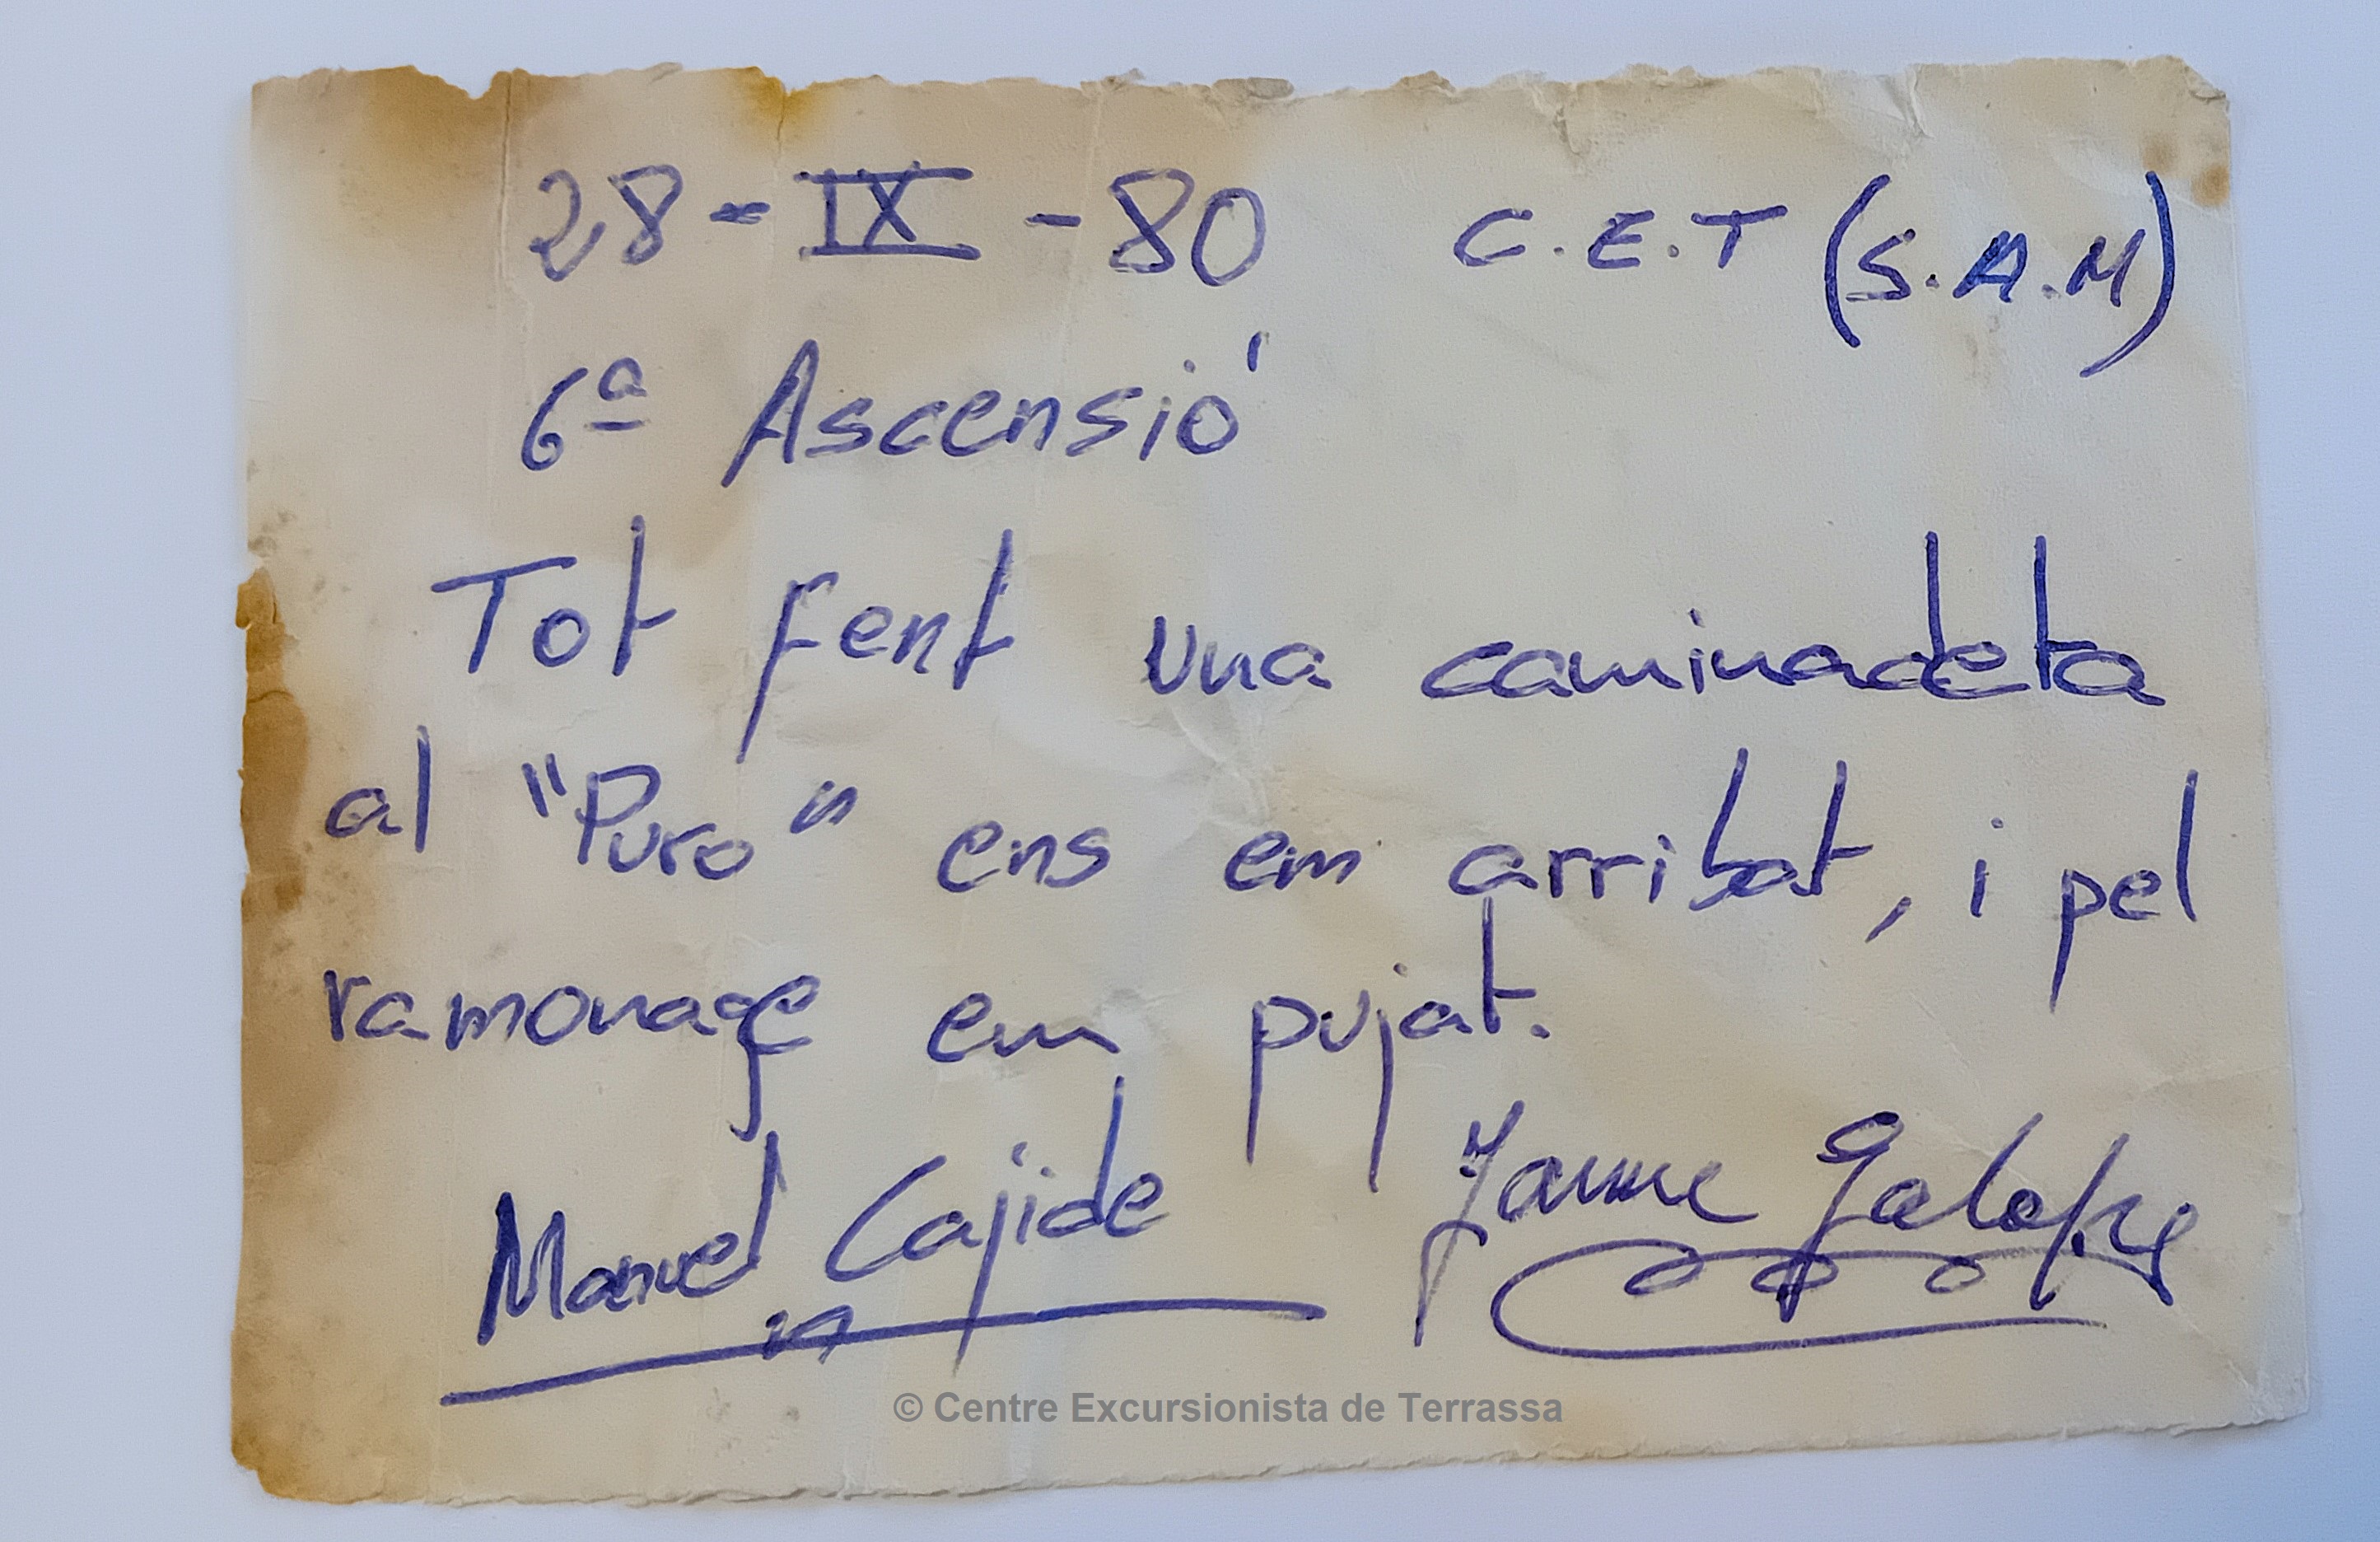 28-IX-80 C.E.T (S.A.M)
6ª Ascensió
Tot fent una caminadeta
al "Puro" ens em arribat, i pel
ramonage em pujat.
Manuel Cajide Jaume
© Centre Excursionista de Terrassa